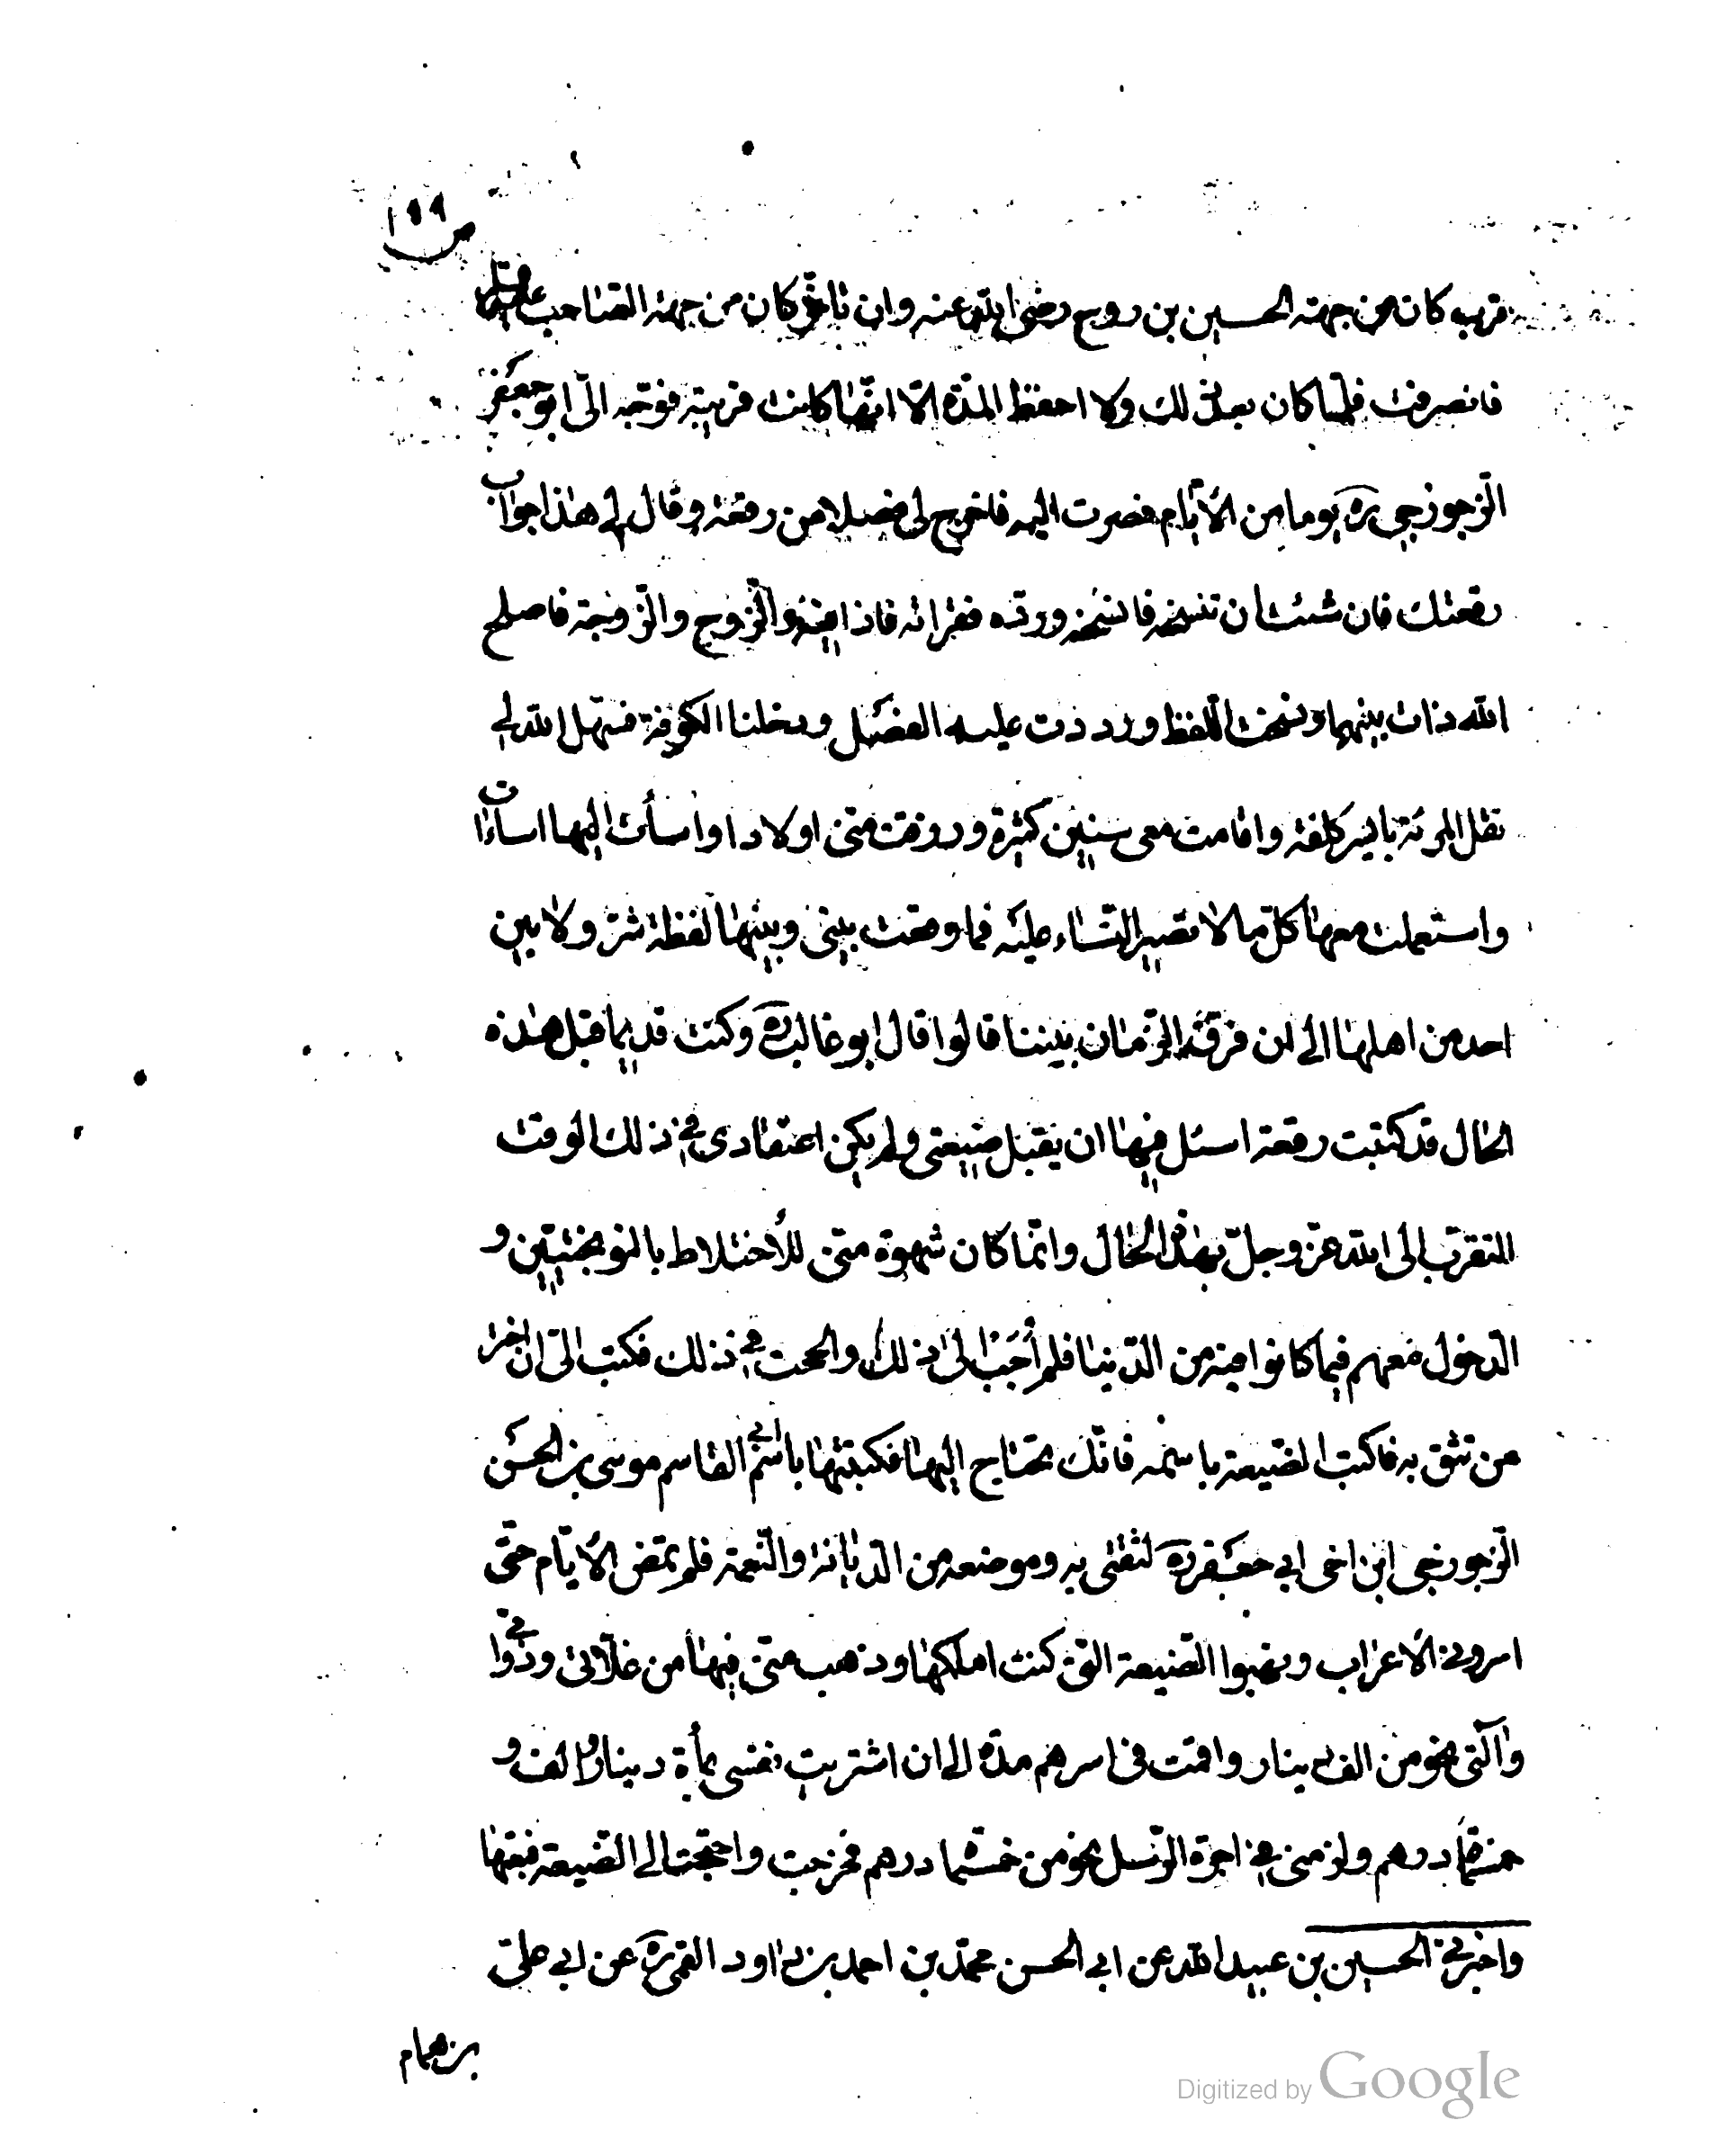 ١٩٩
قرب كان من جهة الحسين بن روح رضى الله عنه وان تاخر كان من جهة الصاحب عليه السلام
فانصرفت فلما كان بعد ذلك ولا احفظ المدة الا انها كانت قريبة فوجه الى ابو جعفر
الزجوزجى ره يوما من الأيام فصرت اليه فاخرج لى فصلا من رقعة وقال لى هذا جواب
رقعتك فان شئت ان تنسخه فانسخه ورده فقراته فاذا فيه والزوج والزوجة فاصلح
الله ذات بينهما ونسخت اللفظ ورددت عليه الفصل ودخلنا الكوفة فسهل الله لى
نقل المرئة بايسر كلفة واقامت معى سنين كثيرة ورزقت منى اولادا واسأت اليها اساءات
واستعملت معها كل ما لا تصبر النساء عليه فما وقعت بينى وبينها لفظة شر ولا بين
احد من اهلها الى ان فرق الزمان بيننا قالوا قال ابو غالب ره وكنت قديما قبل هذه
الحال قد كتبت رقعة اسئل فيها ان يقبل ضيعتى ولم يكن اعتقادى فى ذلك الوقت
التقرب الى الله عز وجل بهذه الحال وانما كان شهوة منى للأختلاط بالنوبختيين و
الدخول معهم فيما كانوا فيه من الدنيا فلم أجب الى ذلك والححت فى ذلك فكتب الى ان اختر
من تثق به فاكتب الضيعة باسمه فانك تحتاج اليها فكتبتها باسم ابى القاسم موسى بن الحسن
الزجوزجى ابن اخى ابى جعفر ره لثقتى به وموضعه من الديانة والنعمة فلم تمض الأيام حتى
اسرونى الاعراب ونهبوا الضيعة التى كنت املكها وذهب منى فيها من غلاتى ودوابى
وآلتى نحو من الف دينار واقمت فى اسرهم مدة الى ان اشتريت نفسى بمأة دينار والف و
خمسمأة درهم ولزمنى فى اجرة الرسل نحو من خمسمأة درهم فخرجت واحتجت الى الضيعة فبعتها
واخبرنى الحسين بن عبيد الله عن ابى الحسن محمد بن احمد بن داود القمى ره عن ابى على
بن همام
Digitized by Google